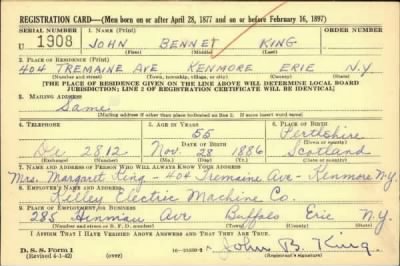 REGISTRATION CARD—(Men born on or after April 28, 1877 and on or before February 16, 1897)
SERIAL NUMBER 1. NAME (Print) ORDER NUMBER
U 1908 JOHN BENNET KING
(First) (Middle) (Last)
2. PLACE OF RESIDENCE (Print)
404 TREMAINE AVE KENMORE ERIE N.Y
(Number and street) (Town, township, village, or city) (County) (State)
[THE PLACE OF RESIDENCE GIVEN ON THE LINE ABOVE WILL DETERMINE LOCAL BOARD
JURISDICTION; LINE 2 OF REGISTRATION CERTIFICATE WILL BE IDENTICAL]
3. MAILING ADDRESS
Same
[Mailing address if other than place indicated on line 2. If same insert word same]
4. TELEPHONE 5. AGE IN YEARS 6. PLACE OF BIRTH
55 Perthshire
DATE OF BIRTH (Town or county)
De 2812 Nov. 28 1886 Scotland
(Exchange) (Number) (Mo.) (Day) (Yr.) (State or country)
7. NAME AND ADDRESS OF PERSON WHO WILL ALWAYS KNOW YOUR ADDRESS
Mrs. Margaret King - 404 Tremaine Ave - Kenmore N.Y.
8. EMPLOYER'S NAME AND ADDRESS
Electric Machine Co.
9. PLACE OF EMPLOYMENT OR BUSINESS
285 Hinman Ave Buffalo Erie N.Y.
(Number and street or R. F. D. number) (Town) (County) (State)
I AFFIRM THAT I HAVE VERIFIED ABOVE ANSWERS AND THAT THEY ARE TRUE.
D. S. S. Form 1
(Revised 4-1-42) (over) John B. King